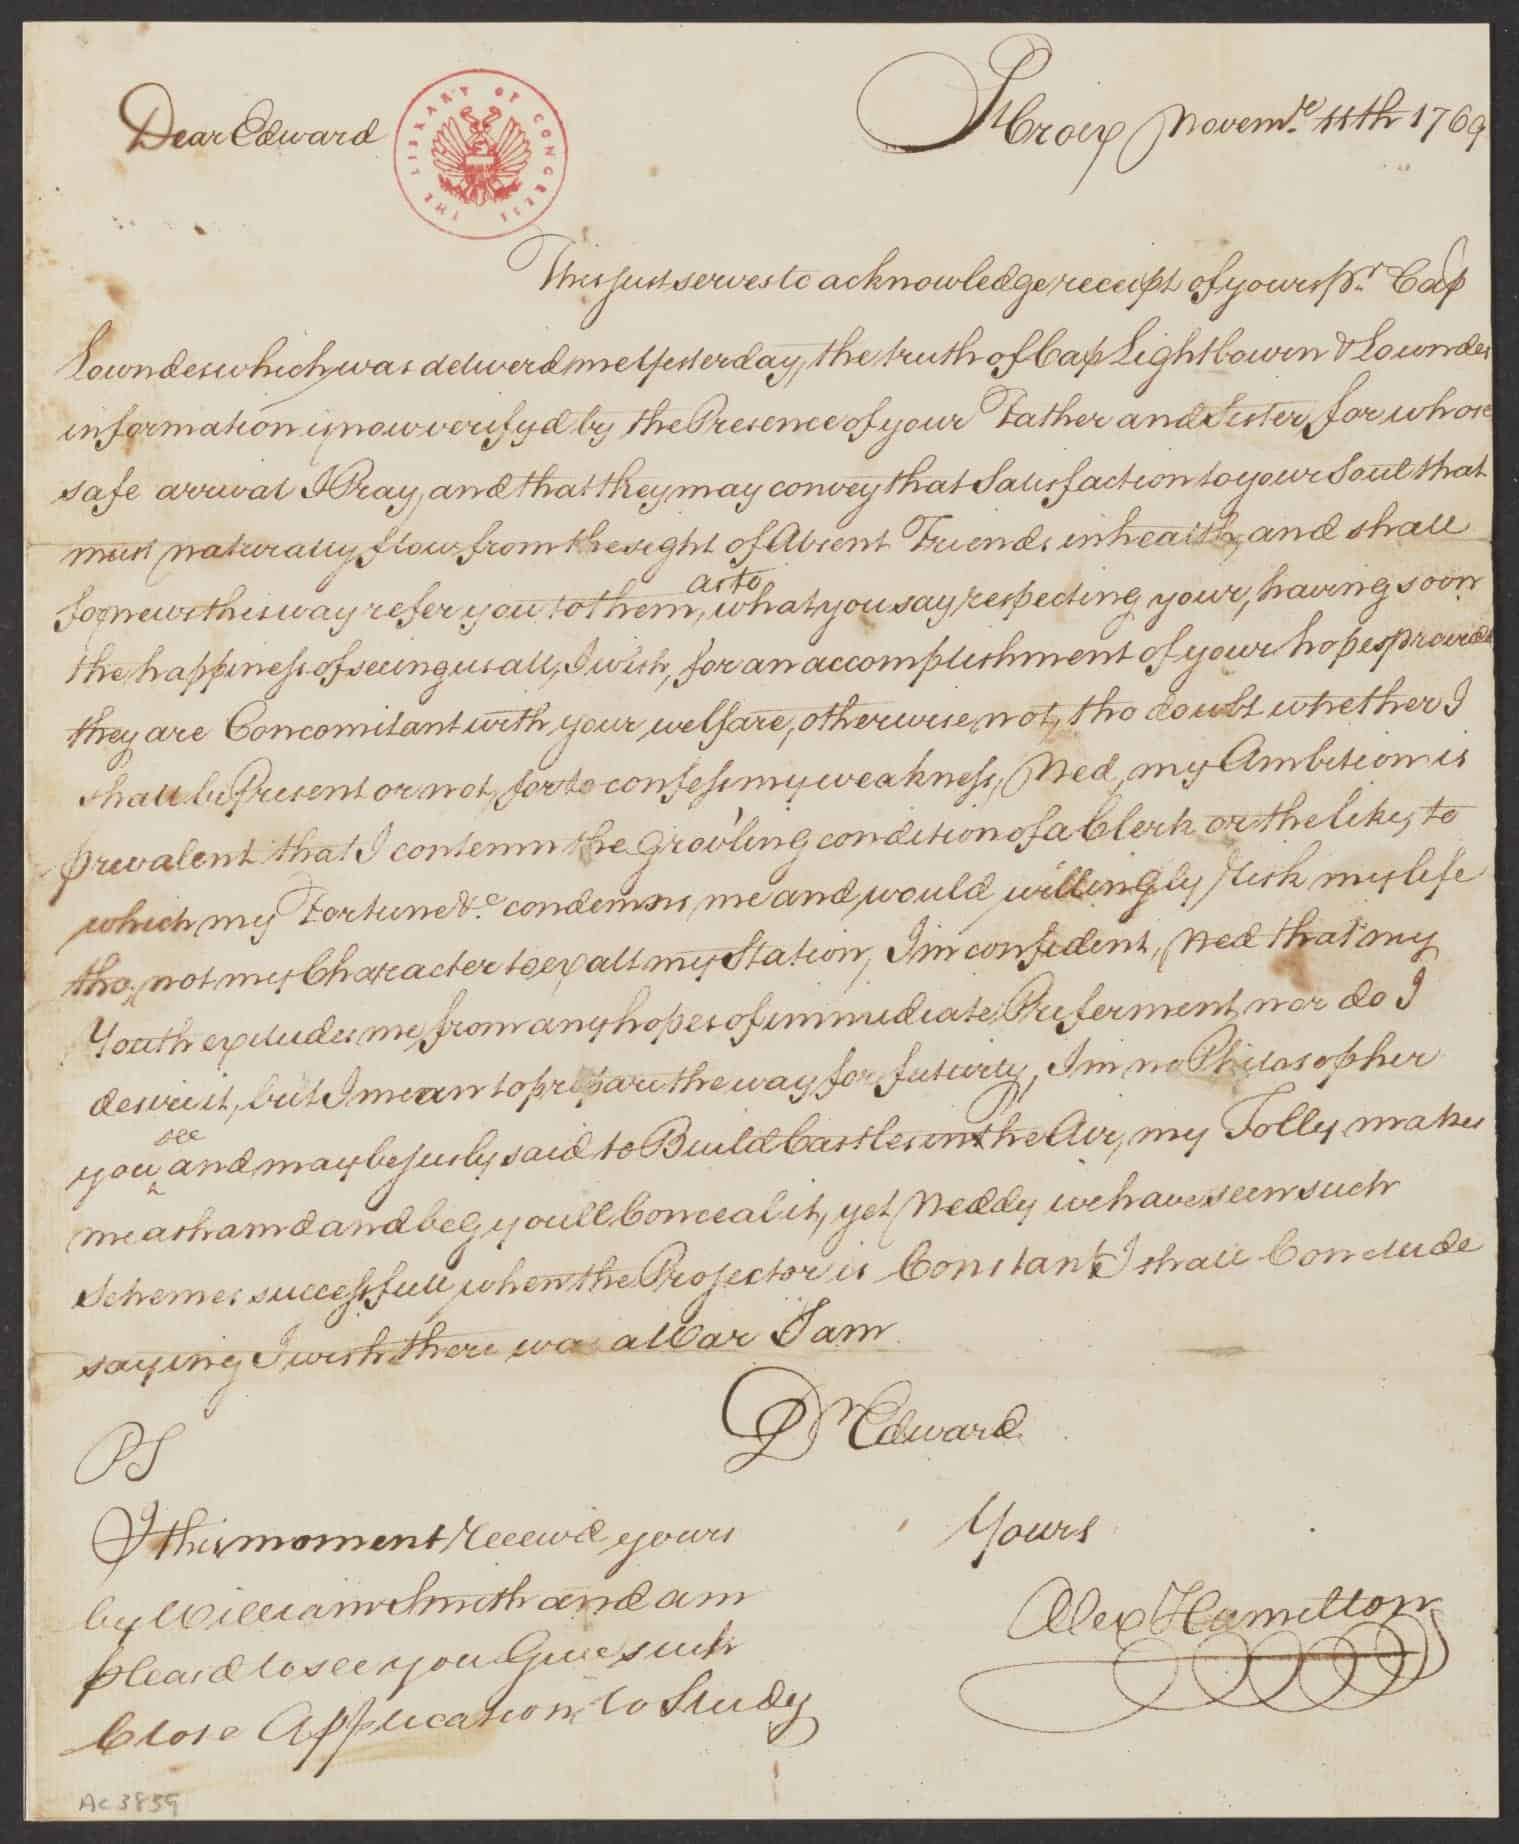 Dear Edward
THE LIBRARY OF CONGRESS
St Croix Novemr. 11th 1769
This just serves to acknowledge receipt of yours pr. Cap
Lowndes which was deliverd me Yesterday, the truth of Cap Lightbowen & Lowndes
information is now verifyd by the Presence of your Father and Sister for whose
safe arrival I Pray, and that they may convey that Satisfaction to your Soul that
must naturally flow from the sight of Absent Friends in health, and shall
for news this way refer you to them, as to what you say respecting your, having soon
the happiness of seeing us all, I wish, for an accomplishment of your hopes provided
they are Concomitant with your welfare, otherwise not, tho doubt whether I
shall be Present or not, for to confess my weakness, Ned, my Ambition is
prevalent that I contemn the grov'ling condition of a Clerk or the like, to
which my Fortune &c. condemns me and would willingly risk my life
tho' not my Character to exalt my Station, Im confident, Ned that my
Youth excludes me from any hopes of immediate Preferment nor do I
desire it, but I mean to prepare the way for futurity, Im no Philosopher
you see and may be jusly said to Build Castles in the Air, my Folly makes
me ashamd and beg youll Conceal it, yet Neddy we have seen such
Schemes successfull when the Projector is Constant I shall Conclude
saying I wish there was a War I am
Dr Edward
PS
Yours
I this moment receivd yours
by William Smith and am
pleasd to see you Give such
Close Application to Study
Alex Hamilton
Ac 3859